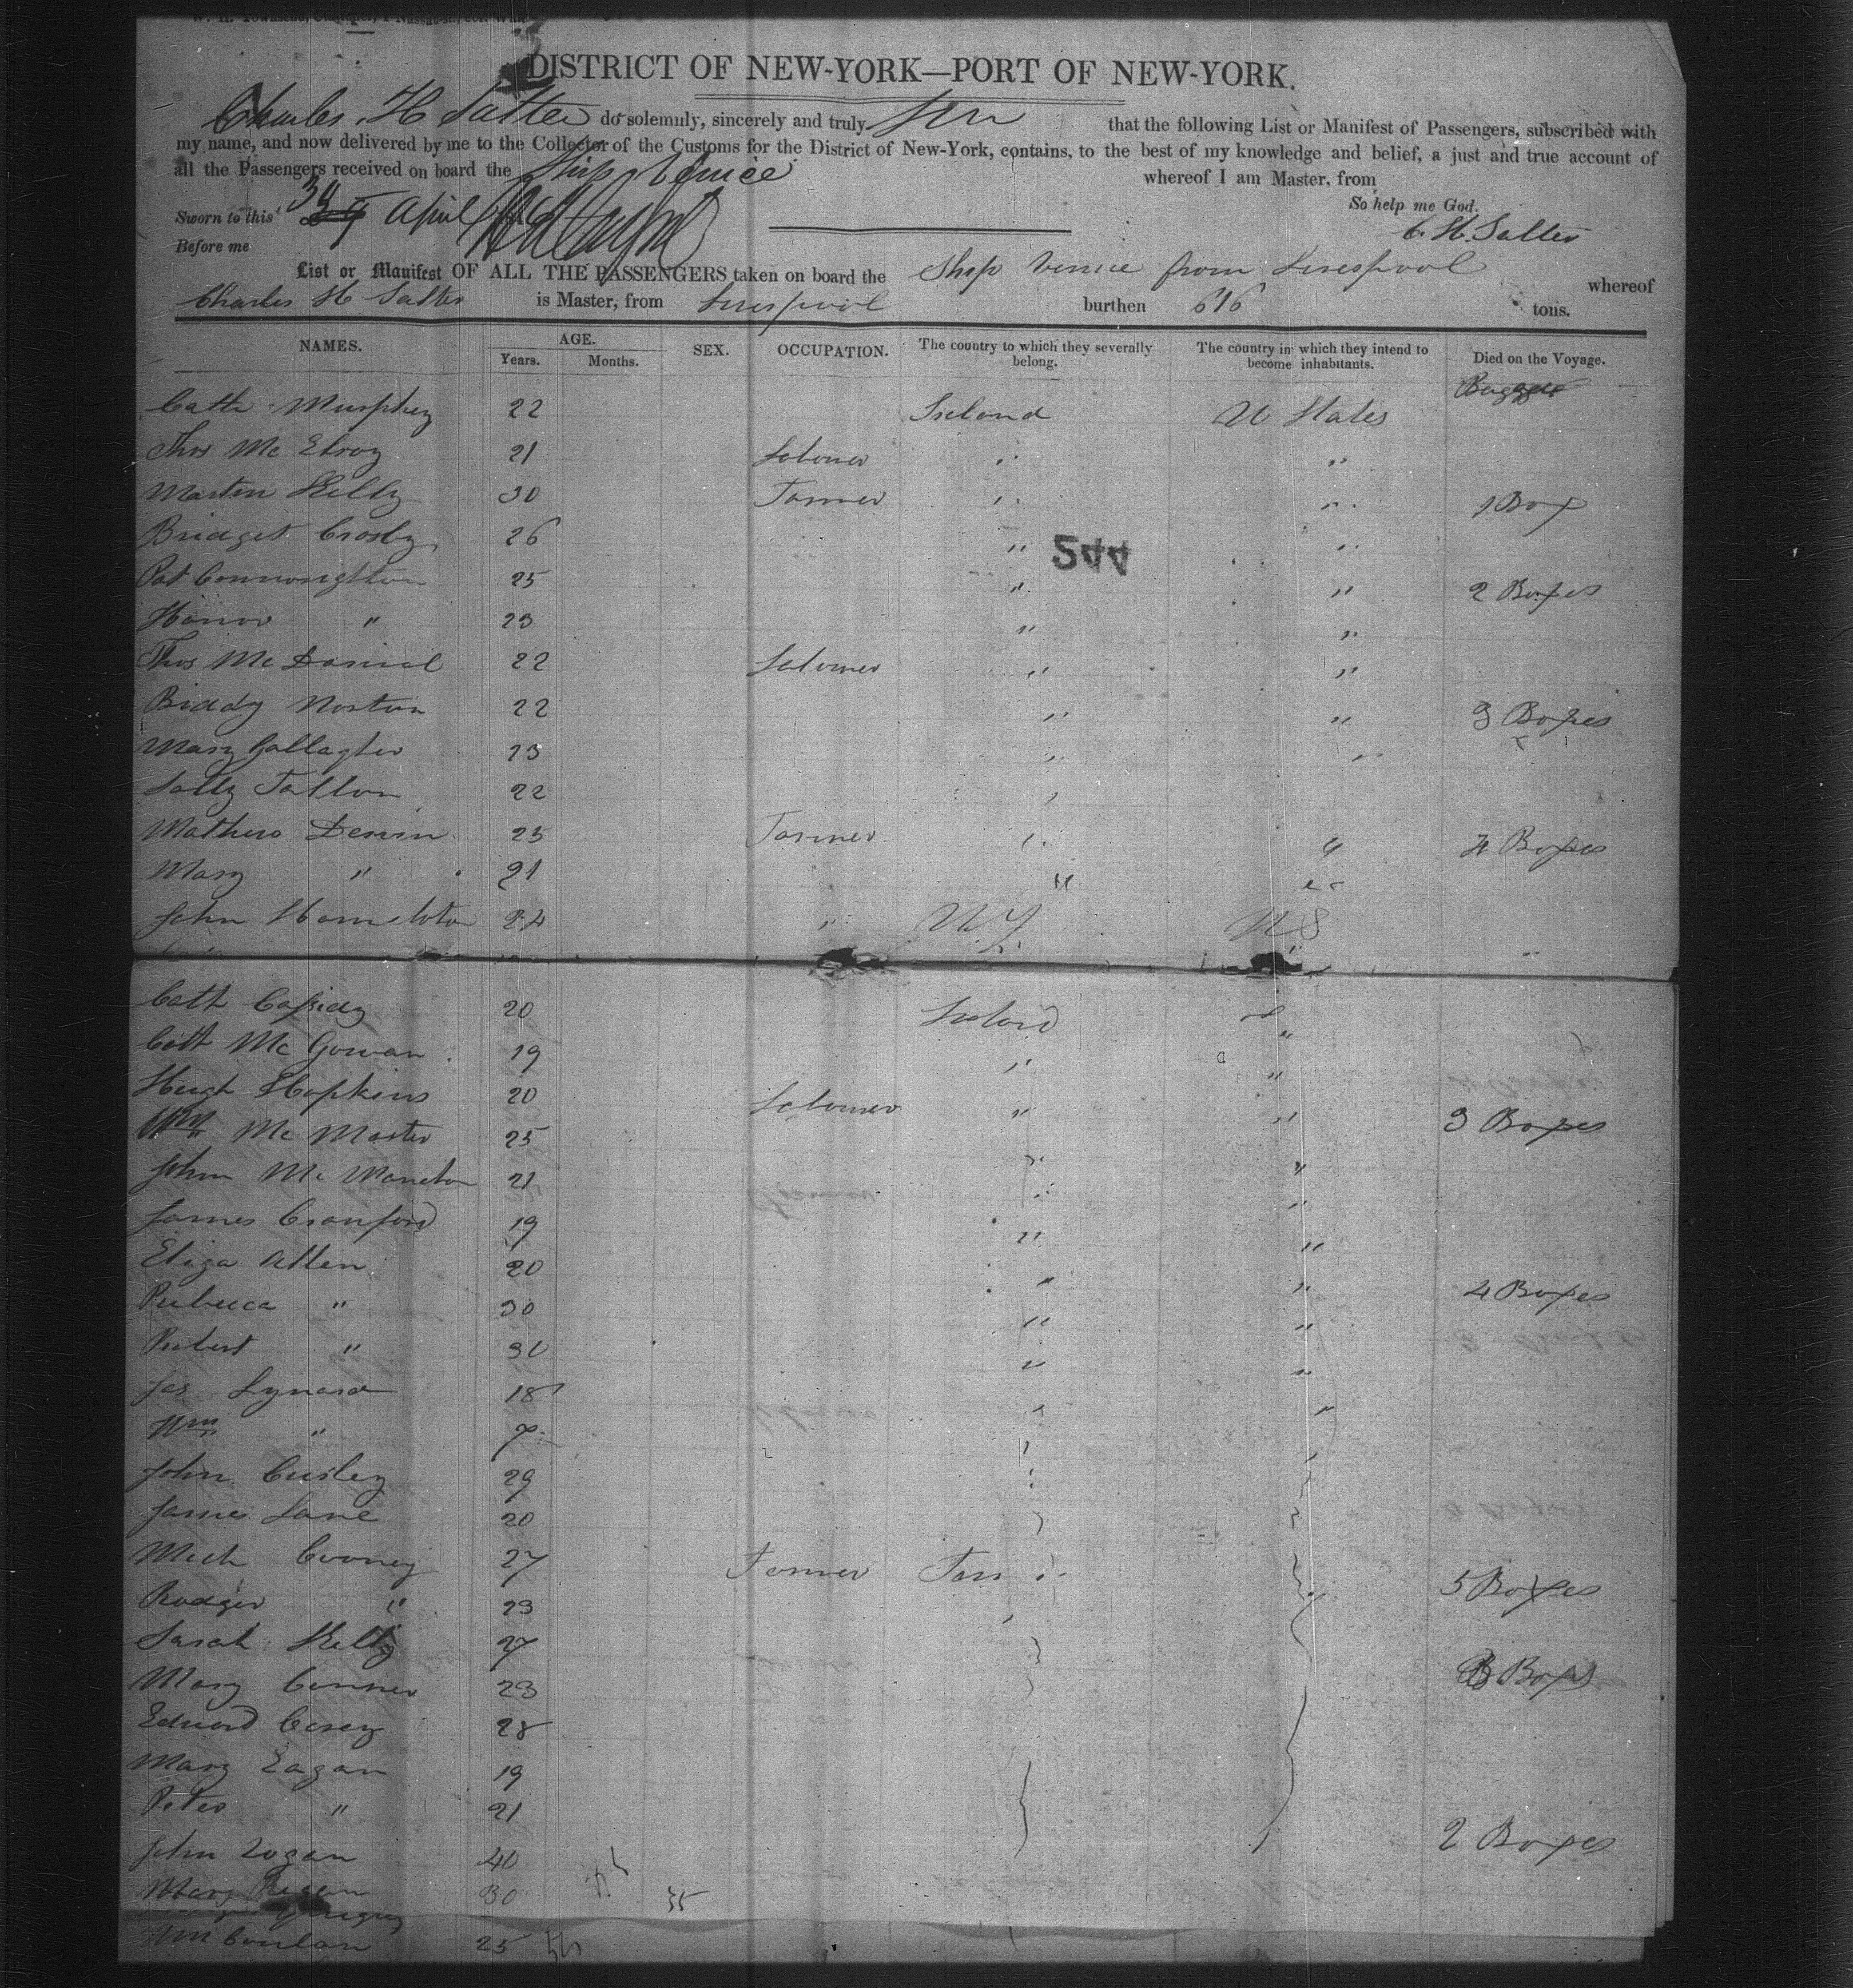 DISTRICT OF NEW-YORK—PORT OF NEW-YORK.
Charles H Salter do solemnly, sincerely and truly that the following List or Manifest of Passengers, subscribed with
my name, and now delivered by me to the Collector of the Customs for the District of New-York, contains, to the best of my knowledge and belief, a just and true account of
all the Passengers received on board the Ship Venice whereof I am Master, from
So help me God.
Sworn to this April C. H. Salter
Before me
List or Manifest OF ALL THE PASSENGERS taken on board the Ship Venice from Liverpool whereof
Charles H Salter is Master, from Liverpool burthen 616 tons.
NAMES. AGE. SEX. OCCUPATION. The country to which they severally belong. The country in which they intend to become inhabitants. Died on the Voyage.
Years. Months.
Cath Murphy 22 Ireland U States
Thos Mc Elroy 21 Labourer " "
Martin Kelly 30 Farmer " " 1 Box
Bridget Crosby 26 " "
544
Pat 25 " " 2 Boxes
Honor " 23 " "
Thos Mc Daniel 22 Labourer " "
Biddy Norton 22 " " 3 Boxes
Mary Gallagher 23 " "
Sally Tallon 22 "
Mathew 25 Farmer " " 4 Boxes
Mary " 21 " "
John 24 " US
Cath Cassidy 20 Ireland "
Cath Mc Gowan 19 " "
Hugh Hopkins 20 Labourer " " 3 Boxes
Wm Mc Master 25 " "
John 21 " "
James Cranford 19 " "
Eliza Allen 20 " " 4 Boxes
Rebecca " 30 " "
Robert " 30 " "
Jas 18 " "
Wm " 7 "
John 29
James Lane 20
Mich Cooney 27 Farmer 5 Boxes
Rodger " 23
Sarah Kelly 27
Mary Conner 23 Boxes
Edward Casey 28
Mary Eagan 19
Peter " 21
John Logan 40 2 Boxes
Mary 30
Conlan 25